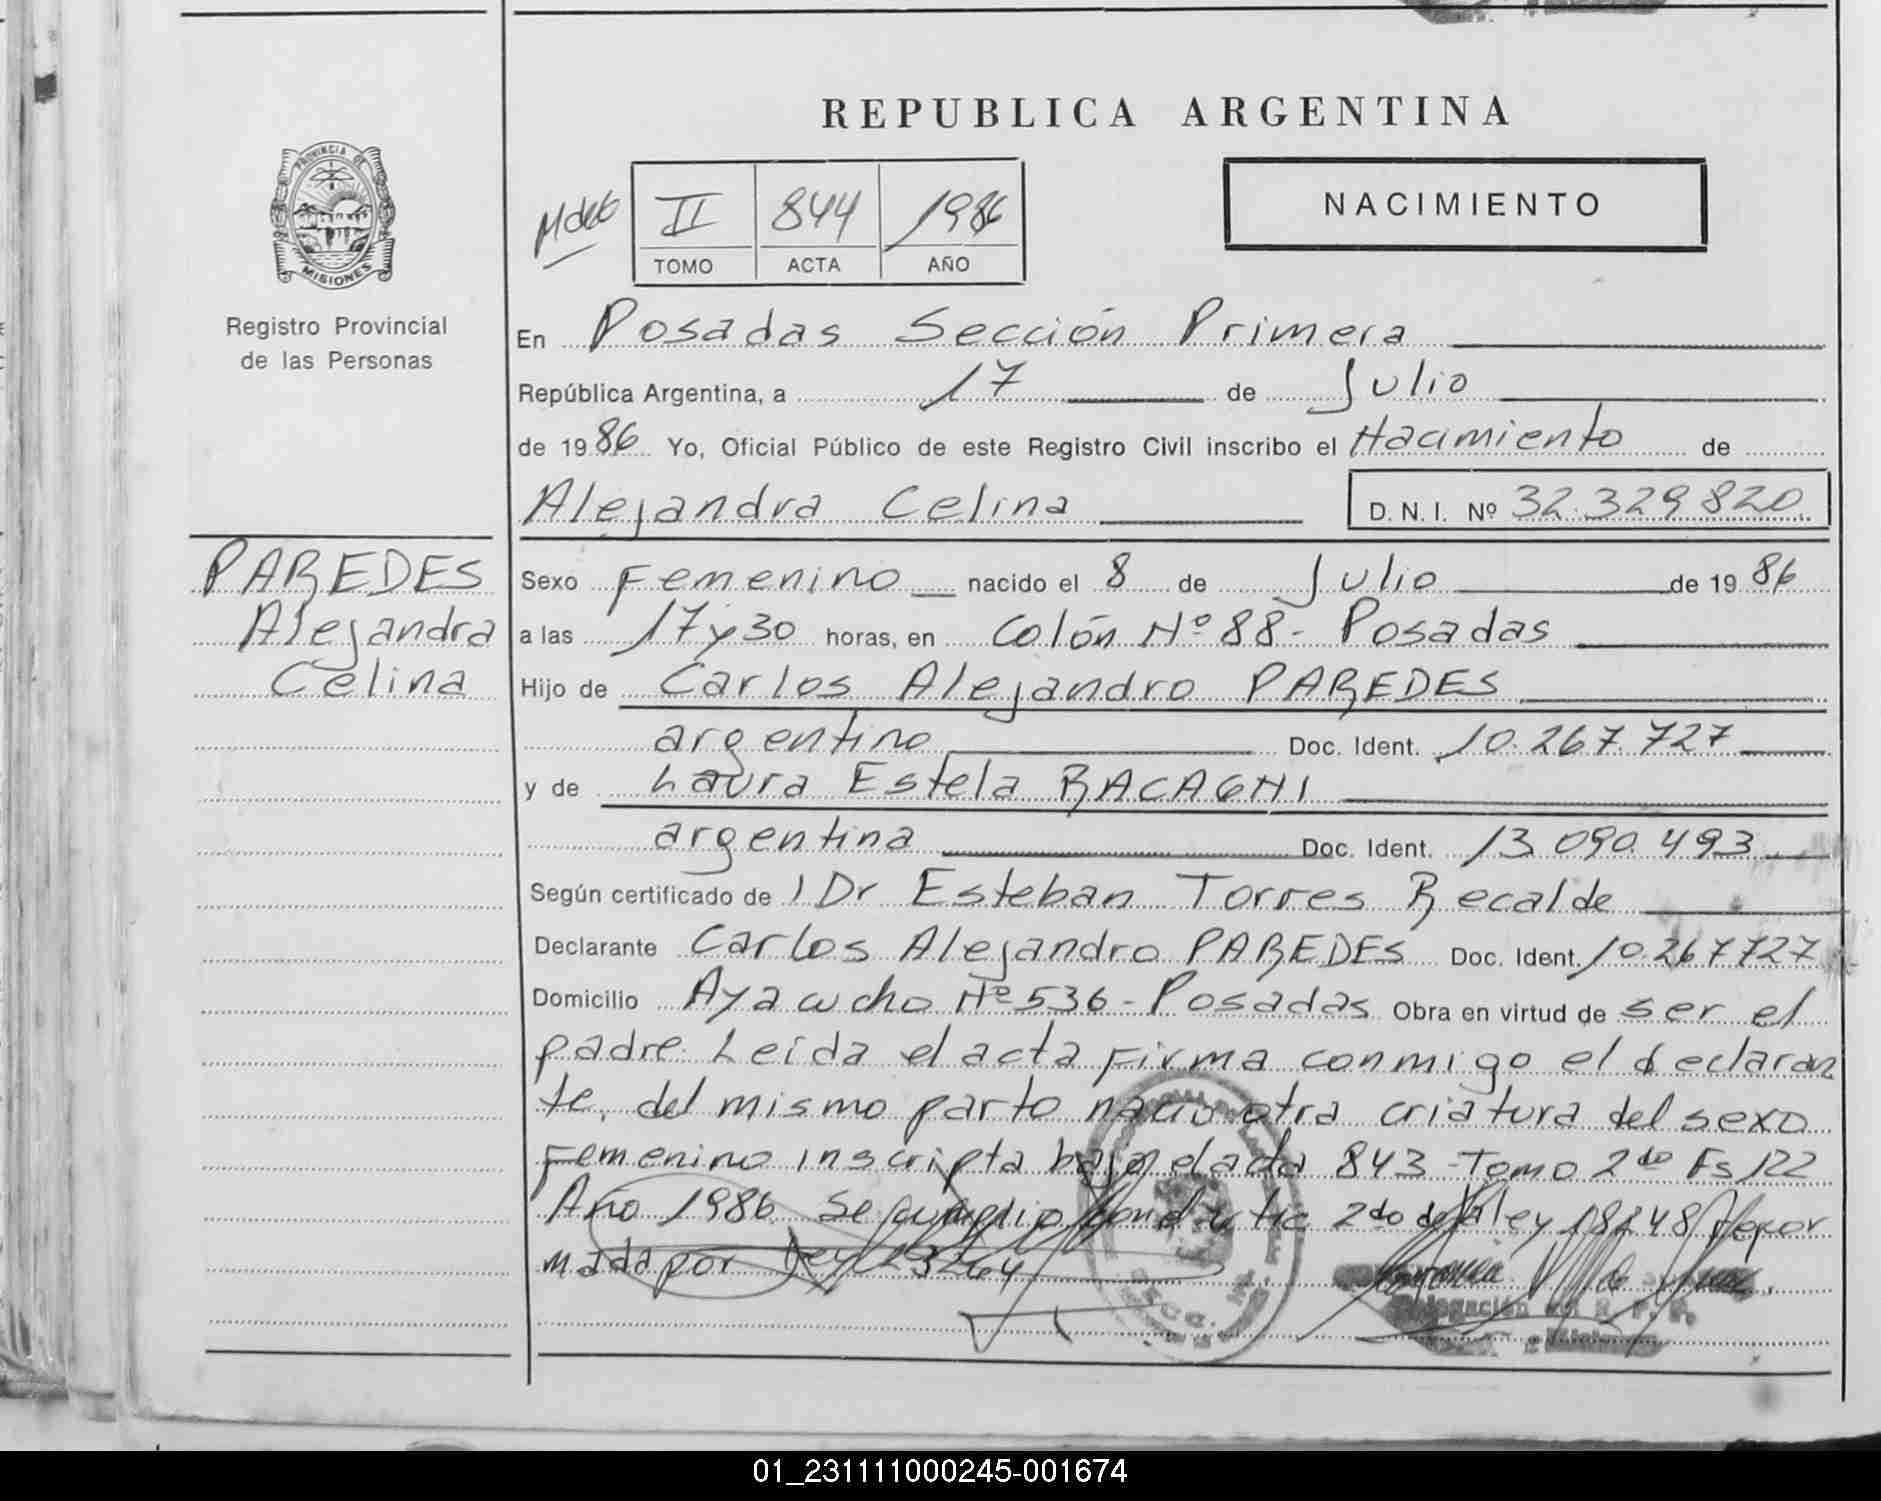 REPUBLICA ARGENTINA
PROVINCIA DE
MISIONES
Registro Provincial
de las Personas
II 844 1986
TOMO ACTA AÑO
NACIMIENTO
En Posadas Sección Primera
República Argentina, a 17 de Julio
de 1986 Yo, Oficial Público de este Registro Civil inscribo el Nacimiento de
Alejandra Celina D. N. I. Nº 32.329.820
PAREDES
Alejandra
Celina
Sexo Femenino nacido el 8 de Julio de 1986
a las 17 y 30 horas, en Colón Nº 88 - Posadas
Hijo de Carlos Alejandro PAREDES
argentino Doc. Ident. 10.267.727
y de Laura Estela RACAGNI
argentina Doc. Ident. 13.090.493
Según certificado de l Dr Esteban Torres Recalde
Declarante Carlos Alejandro PAREDES Doc. Ident. 10.267727
Domicilio Ayacucho Nº 536 - Posadas Obra en virtud de ser el
padre. Leída el acta firma conmigo el declaran
te, del mismo parto nacio otra criatura del sexo
Femenino inscripta bajo el acta 843 - Tomo 2do Fs 122
Año 1986. Se cumplio con el 2do de la ley 18248 Refor
mada por Ley 23264
Delegación del R. P. P.
01_231111000245-001674